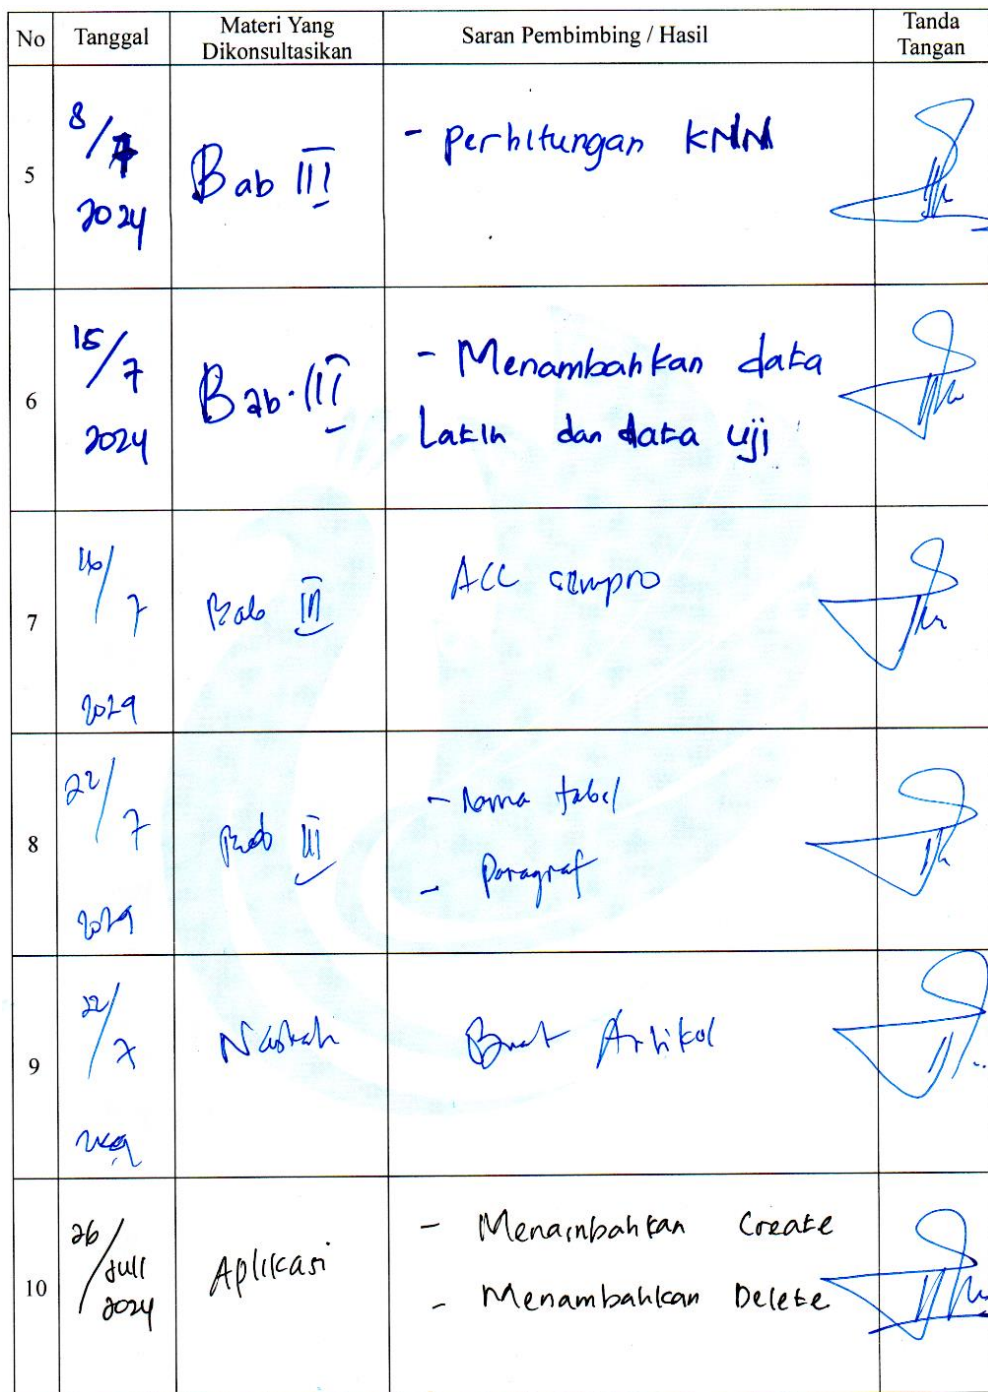 No Tanggal Materi Yang Dikonsultasikan Saran Pembimbing / Hasil Tanda Tangan
5 8/7 2024 Bab III - perhitungan KNN
6 15/7 2024 Bab III - Menambahkan data
Latih dan data uji
7 16/7 2024 Bab III ACC sempro
8 22/7 2024 Bab III - Nama tabel
- Paragraf
9 22/7 Naskah Buat Artikel
10 26/Juli 2024 Aplikasi - Menambahkan Create
- Menambahkan Delete